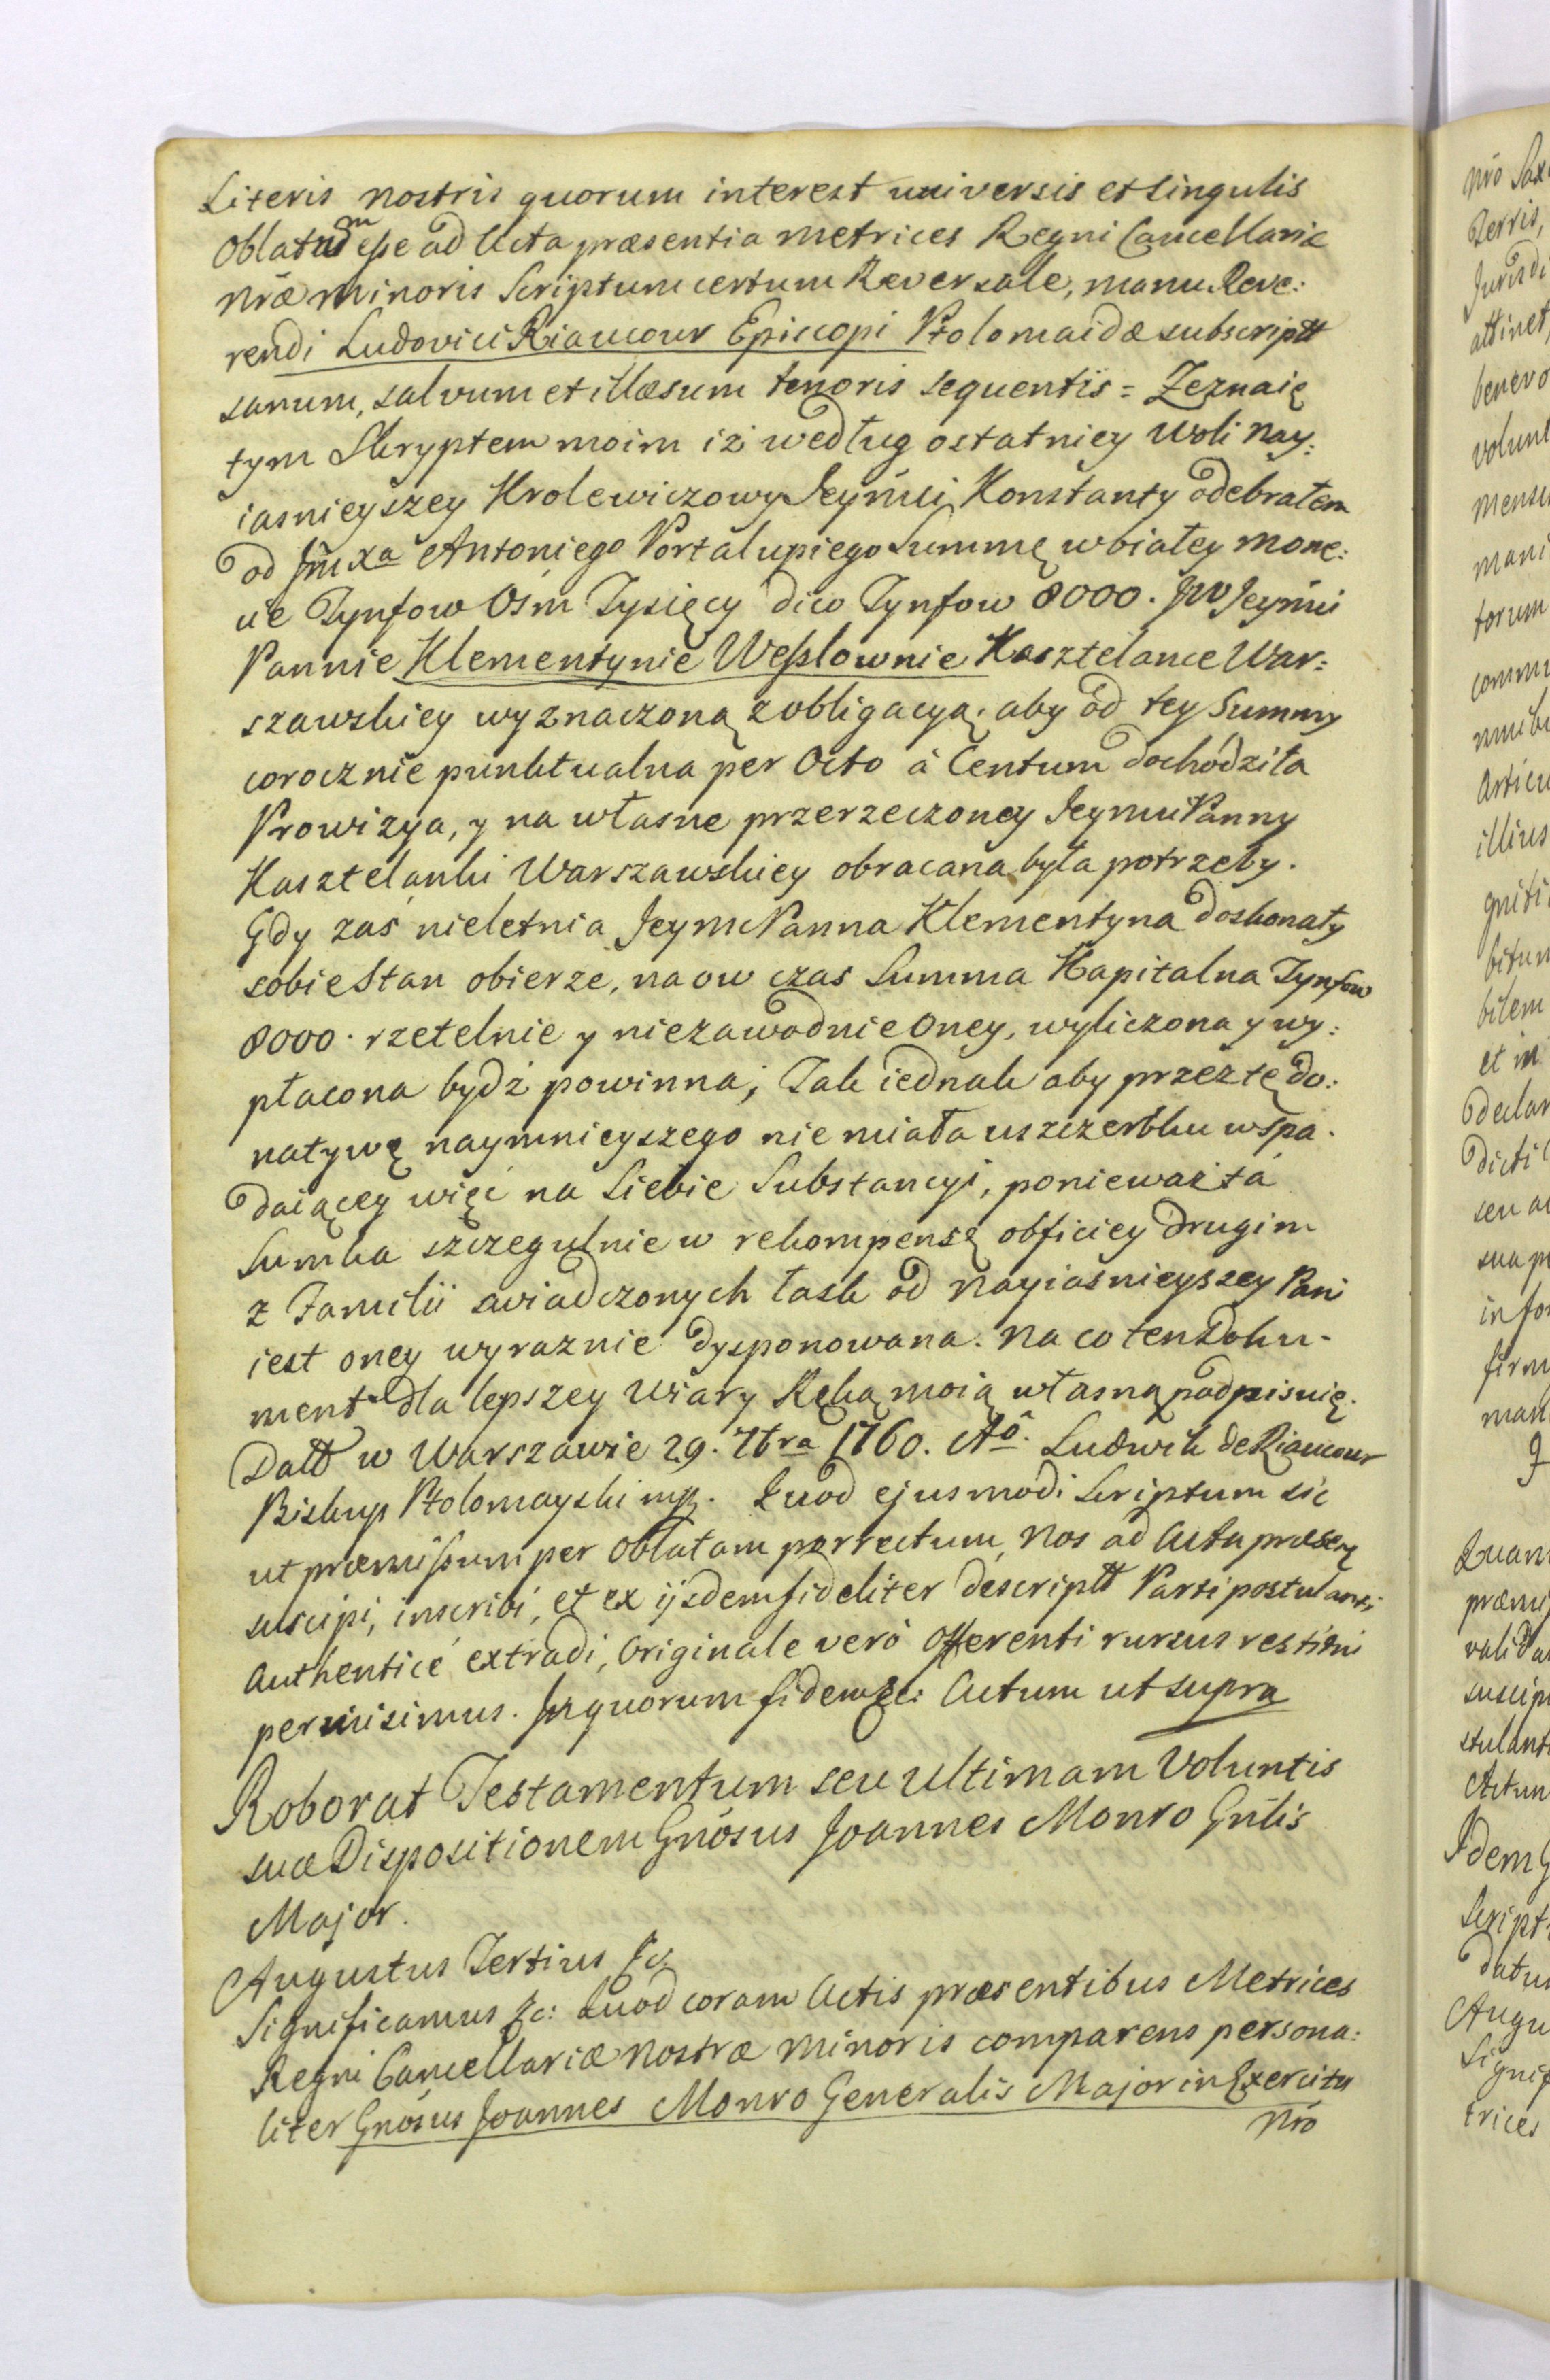 Literis nostris quorum interest universis et singulis
Oblatum esse ad Acta præsentia Metrices Regni Cancellariæ
Nræ minoris Scriptum certum Reversale, manu Reve:
rendi Ludovici Riaucour Episcopi Ptolomaidæ subscriptt
sanum, salvum et illæsum tenoris sequentis = Zeznaię
tym Skryptem moim iż według ostatniey Woli Nay:
iasnieyszey Krolewiczowy Jeymci Konstanty odebrałem
od Jmxa Antoniego Portalupiego Summę w białey mone:
cie Tynfow Ośm Tysięcy dico Tynfow 8000. JW Jeymci
Pannie Klementynie Wesslownie Kasztelance War:
szawskiey wyznaczoną z obligacyą. aby od tey Summy
corocznie punktualna per Octo à Centum dochodziła
Prowizya, y na własne przerzeczoney Jeymci Panny
Kasztelanki Warszawskiey obracana była potrzeby.
Gdy zaś nieletnia Jeymc Panna Klementyna doskonały
sobie Stan obierze, na ow czas Summa Kapitalna Tynfow
8000. rzetelnie y niezawodnie Oney, wyliczona y wy:
płacona bydź powinna; Tak iednak aby przez tę do:
natywę naymnieyszego nie miała uszczerbku w spa.
daiącey więc na Siebie Substancyi, ponieważ ta
Sumka szczegulnie w rekompensę obficiey drugim
z Familii swiadczonych łask od Nayiasnieyszey Pani
iest oney wyraznie dysponowana. Na co ten Doku-
ment dla lepszey Wiary Ręką moią własną podpisuię.
Datt w Warszawie 29. 7bra 1760. Aô. Ludwik de Riaucour
Biskup Ptolomayski mp. Quod ejusmodi Scriptum sic
ut præmissum per Oblatam porrectum, Nos ad Acta præsen
suscipi, inscribi, et ex ijsdem fideliter descriptt Parti postulanti
Authenticé extradi, Originale veró Offerenti rursus restitui
permisimus. In quorum fidem &c: Actum ut supra
Roborat Testamentum seu Ultimam Voluntis
suæ Dispositionem Gnosus Joannes Monro Gnlis
Major.
Augustus Tertius &c
Significamus &c: Quod coram Actis præsentibus Metrices
Regni Cancellariæ Nostræ Minoris comparens persona:
liter Gnosus Joannes Monro Generalis Major in Exercitu
Nro